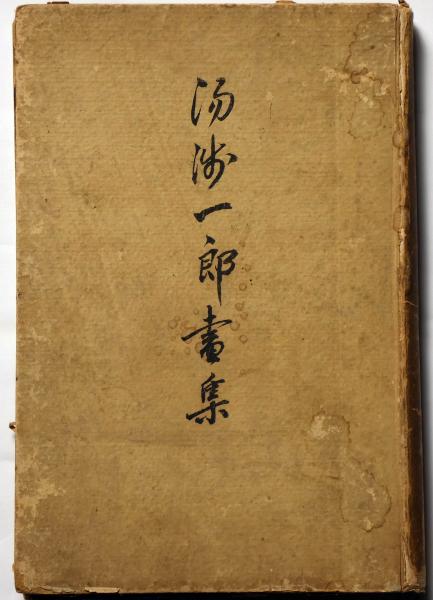 湯浅一郎畫集